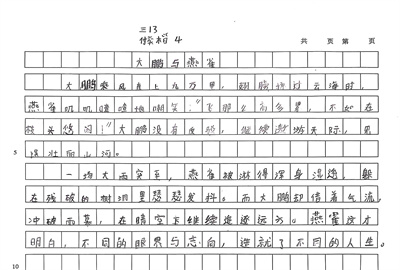 三13
共 页 第 页
大鹏与燕雀
大鹏乘风直上九万里，翅膀掠过云海时，
燕雀叽叽喳喳地嘲笑："飞那么高多累，不如在
枝头悠闲！"大鹏没有反驳，继续遨游天际，见
5
壮丽山河。
一场大雨突至，燕雀被淋得浑身湿透，躲
在残破的树洞里瑟瑟发抖。而大鹏却借着气流，
冲破雨幕，在晴空下继续走远方。燕雀这才
明白，不同的眼界与志向，造就了不同的人生。
10